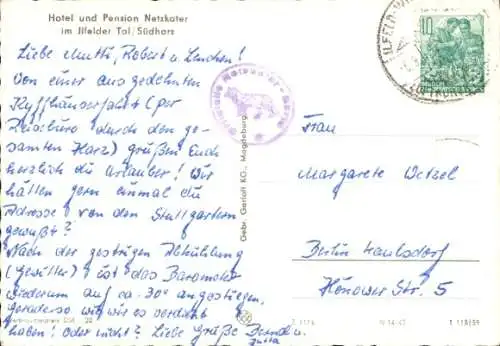 Hotel und Pension Netzkater
im Ilfelder Tal/Südharz
Liebe Mutti, Robert u. Lenchen!
Von einer ausgedehnten
Kyffhäuserfahrt (per
Reisebüro durch den ge-
samten Harz) grüßen Euch
herzlich die Urlauber! Wir
hätten gern einmal die
Adresse von den Stuttgartern
gewußt?
Nach der gestrigen Abkühlung
(Gewitter) ist das Barometer
wiederum auf ca. 30° angestiegen,
geradeso wie wir es verdient
haben! oder nicht? Liebe Grüße
Bernd u.
Jutta
Gebr. Garloff KG., Magdeburg
10
Frau
Margarete Wetzel
Berlin Kaulsdorf
Hönower Str. 5